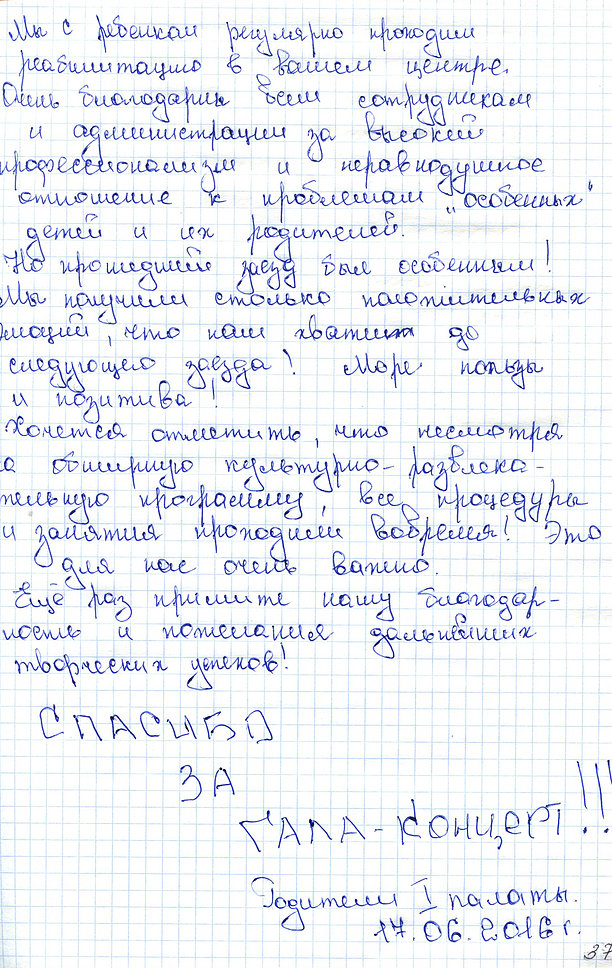 Мы с ребенком регулярно проходим
реабилитацию в вашем центре.
Очень благодарны всем сотрудникам
и администрации за высокий
профессионализм и неравнодушное
отношение к проблемам „особенных"
детей и их родителей.
Но прошедший заезд был особенным!
Мы получили столько положительных
эмоций, что нам хватит до
следующего заезда! Море пользы
и позитива!
Хочется отметить, что несмотря
на обширную культурно-развлека-
тельную программу, все процедуры
и занятия проходили вовремя! Это
для нас очень важно.
Ещё раз примите нашу благодар-
ность и пожелания дальнейших
творческих успехов!
СПАСИБО
ЗА
ГАЛА-КОНЦЕРТ!!!
Родители I палаты.
17.06.2016 г.
37